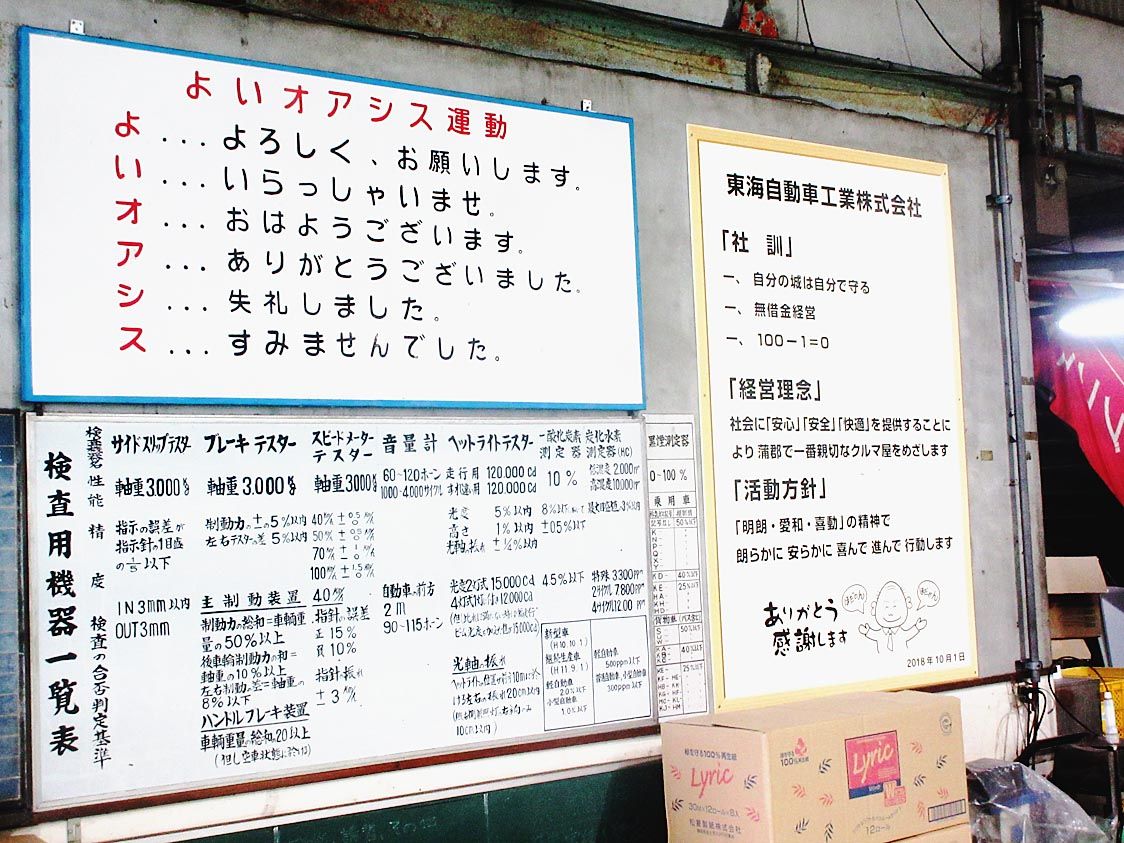 よいオアシス運動
よ...よろしく、お願いします。
い...いらっしゃいませ。
オ...おはようございます。
ア...ありがとうございました。
シ...失礼しました。
ス...すみませんでした。
東海自動車工業株式会社
「社 訓」
一、自分の城は自分で守る
一、無借金経営
一、100－1＝0
「経営理念」
社会に「安心」「安全」「快適」を提供することに
より蒲郡で一番親切なクルマ屋をめざします
「活動方針」
「明朗・愛和・喜動」の精神で
朗らかに 安らかに 喜んで 進んで 行動します
ありがとう
感謝します
2018年10月1日
検査用機器一覧表
検査機器名
サイドスリップテスター
ブレーキテスター
スピードメーター
テスター
音量計
ヘットライトテスター
一酸化炭素
測定器
炭化水素
測定器(HC)
黒煙測定器
性能
軸重3.000kg
軸重3.000kg
軸重3000kg
60~120ホーン
1000~4.000サイクル
走行用 120.000cd
すれ違い用 120.000cd
10%
低濃度 2.000
高濃度 10.000
0~100%
精度
指示の誤差が
指示針の1目盛
の1/5以下
制動力の±の5%以内
左右テスターの差5%以内
光度 5%以内
高さ 1%以内
光軸の振れ
検査の合否判定基準
IN3mm以内
OUT3mm
主制動装置
制動力の総和=車輌重
量の50%以上
後車輪制動力の和=
軸重の10%以上
左右制動の差=軸重の
8%以下
ハンドルブレーキ装置
車輌重量の総和20以上
(但し空車状態に於ける)
指針の誤差
正15%
負10%
指針の振れ
自動車の前方
2m
90~115ホーン
光度2灯式15,000cd
4灯式1灯につき12,000cd
光軸の振れ
4.5%以下
特殊3300
2サイクル7800
4サイクル1200
新型車
(H10.10.1)
継続生産車
(H11.9.1)
軽自動車
2.0%以下
小型自動車
1.0%以下
軽自動車
500ppm以下
300ppm以下
乗用車
緑を守る100%再生紙
Lyric
30M×12ロール×8入
100%再生紙
Lyric
12ロール